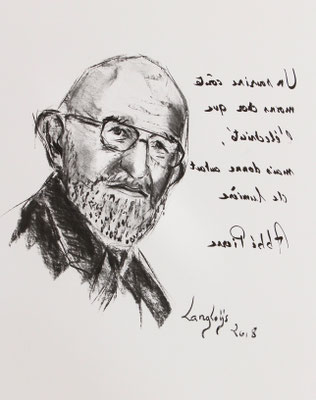 Un sourire coûte
moins cher que
l'électricité,
mais donne autant
de lumière
Abbé Pierre
Langloÿs
2018